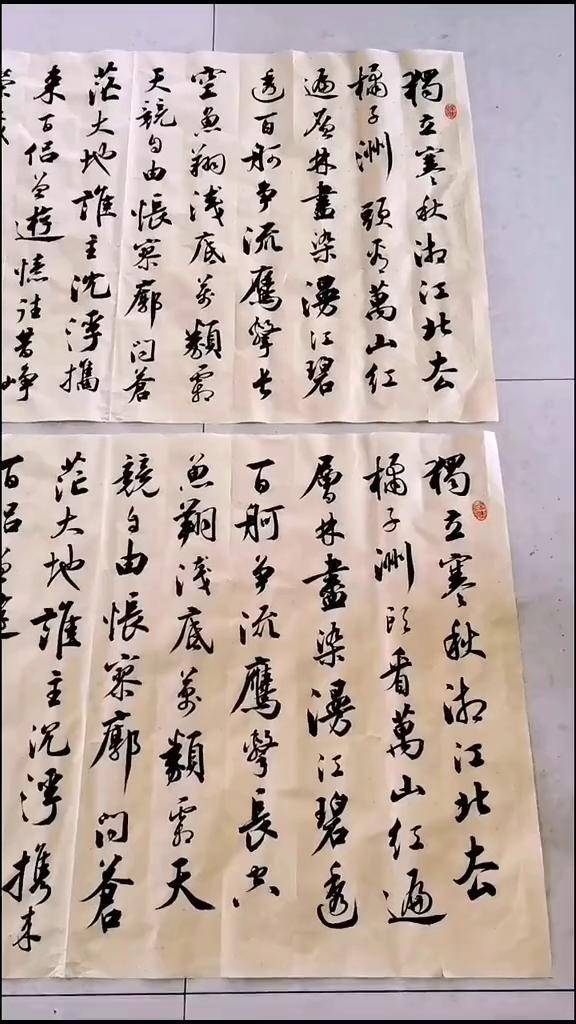 獨立寒秋湘江北去
橘子洲頭看萬山紅
遍層林盡染漫江碧
透百舸爭流鷹擊長
空魚翔淺底萬類霜
天競自由悵寥廓問蒼
茫大地誰主沈浮攜
來百侶曾遊憶往昔崢
獨立寒秋湘江北去
橘子洲頭看萬山紅遍
層林盡染漫江碧透
百舸爭流鷹擊長空
魚翔淺底萬類霜天
競自由悵寥廓問蒼
茫大地誰主沈浮攜來
百侶曾遊